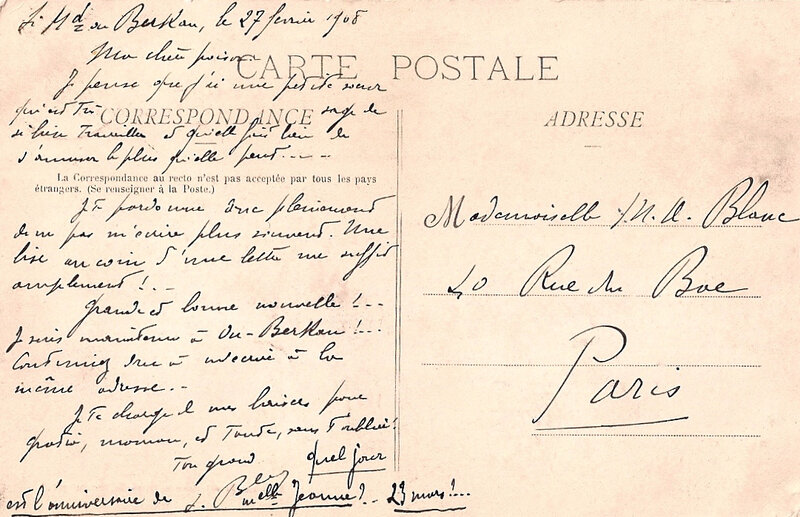 Si Md ou Berkan, le 27 février 1908
Ma chère
CARTE POSTALE
Je pense que j'ai une petite sœur
qui est CORRESPONDANCE sage de
si bien travailler et qu'elle fait bien de
s'amuser le plus qu'elle peut....
La Correspondance au recto n'est pas acceptée par tous les pays
étrangers. (Se renseigner à la Poste.)
Je te pardonne donc pleinement
de ne pas m'écrire plus souvent. Une
bise au coin d'une lettre me suffit
amplement!..
Grande et bonne nouvelle!...
Je suis maintenu à Ou-Berkan!...
Continuez donc à m'écrire à la
même adresse...
Je te charge de mes baisers pour
maman, et Tante, sans t'oublier!
Ton grand
Quel jour
est l'anniversaire de melle Jeanne?.. 23 mars!...
ADRESSE
Mademoiselle M. A. Blanc
40 Rue du Bac
Paris